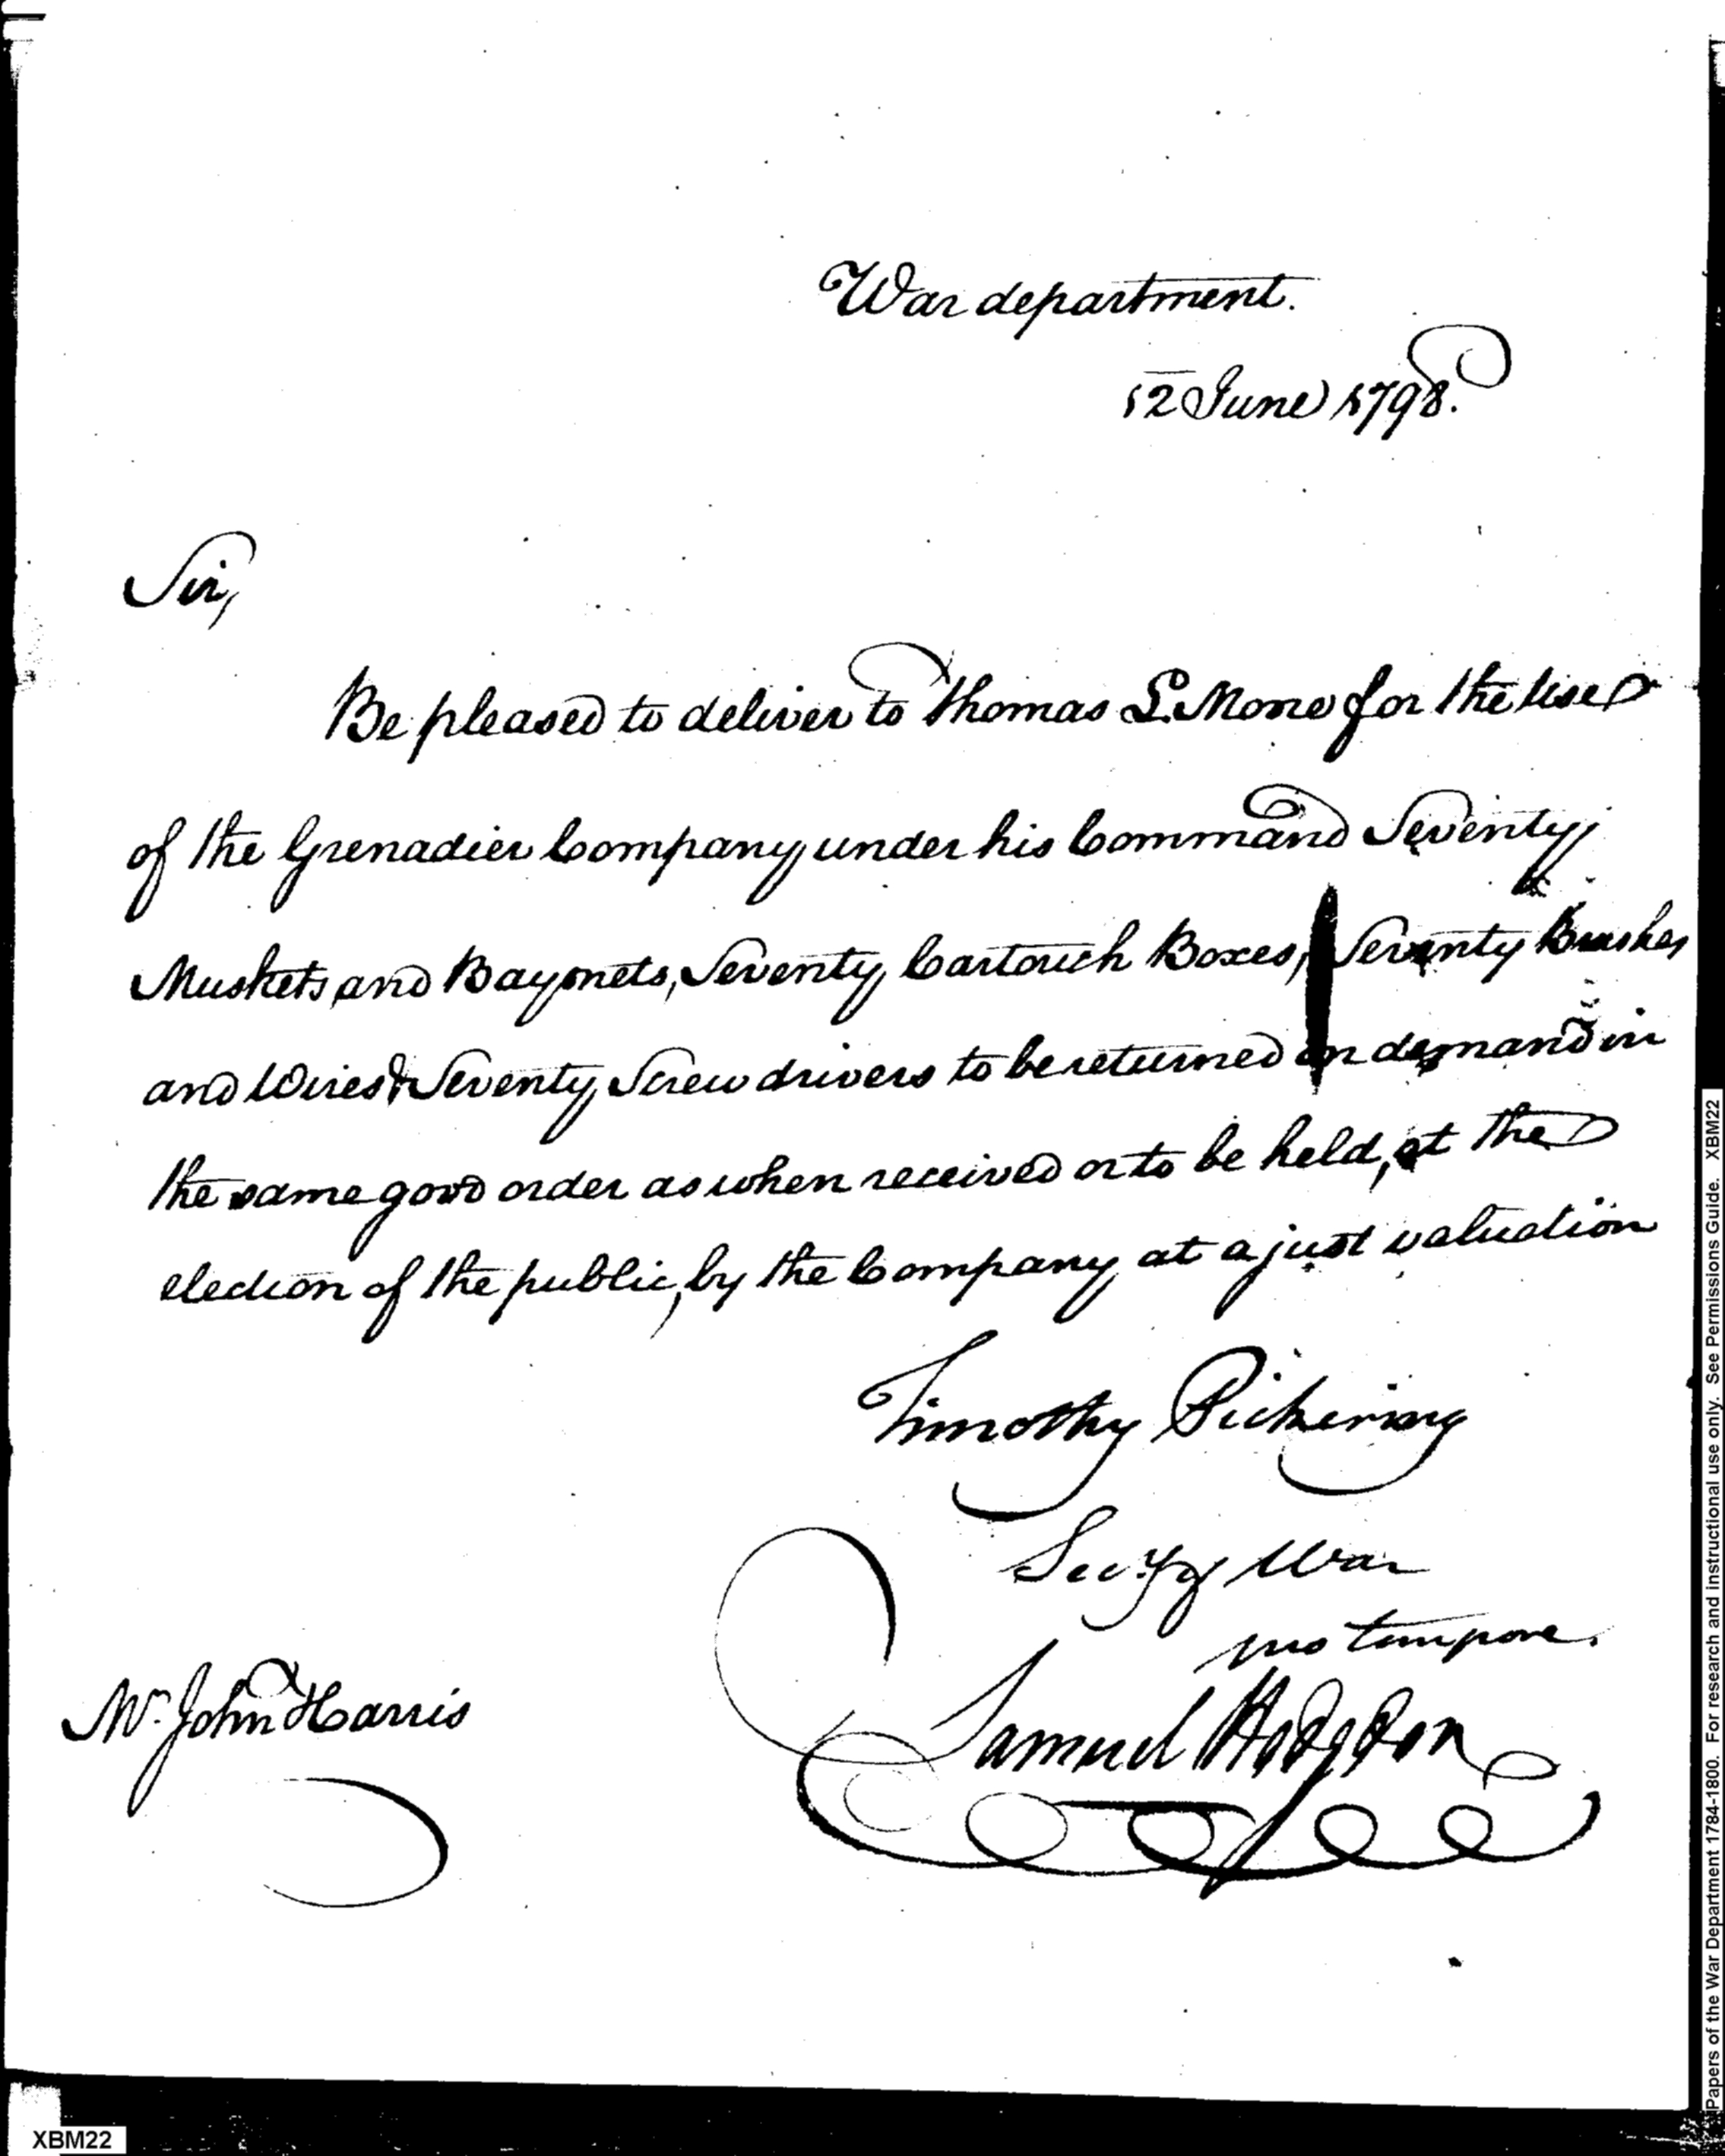 War department.
12 June 1798.
Sir,
Be pleased to deliver to Thomas L. Mone for the use
of the Grenadier Company under his Command Seventy
Muskets and Bayonets, Seventy Cartouch Boxes, Seventy Brushes
and Wires & Seventy Screw drivers to be returned on demand in
the same good order as when received or to be held, at the
election of the public, by the Company at a just valuation
Timothy Pickering
Secy. of War
pro tempore.
Mr. John Harris
Samuel Hodgdon
Papers of the War Department 1784-1800. For research and instructional use only. See Permissions Guide. XBM22
XBM22